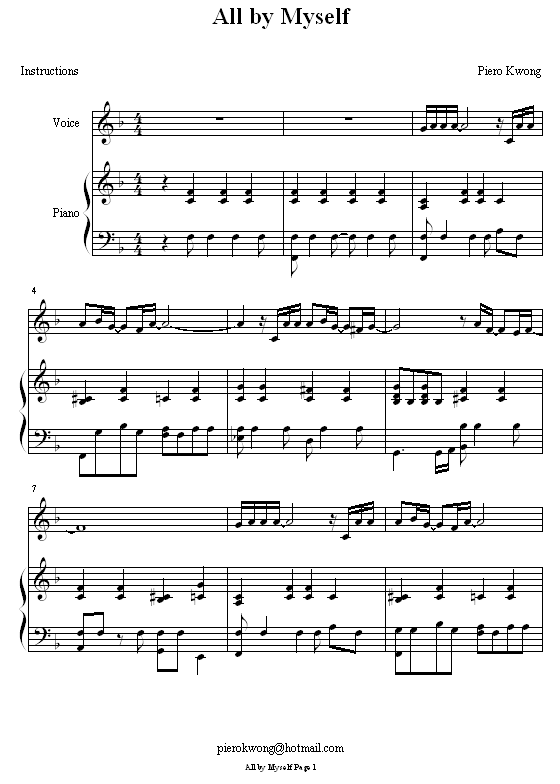 All by Myself
Instructions
Piero Kwong
Voice
Piano
4
7
pierokwong@hotmail.com
All by Myself Page 1